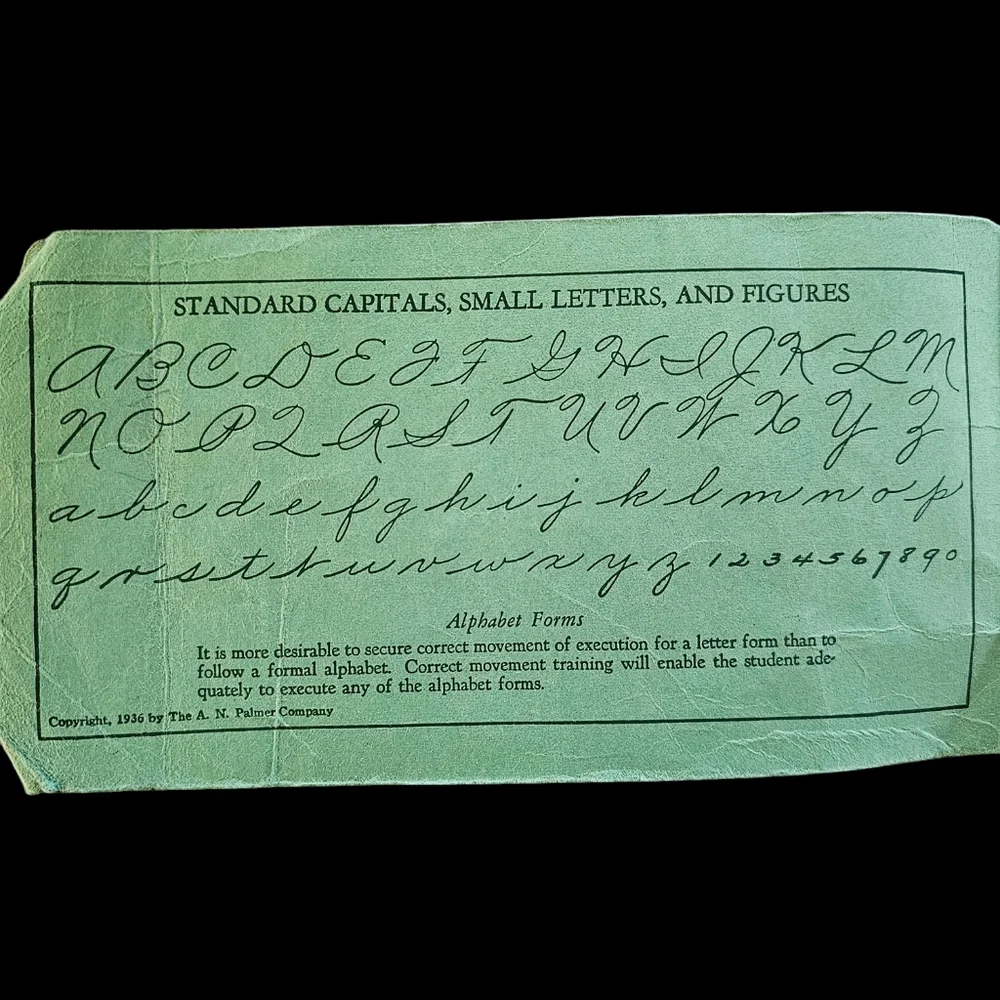 STANDARD CAPITALS, SMALL LETTERS, AND FIGURES
A B C D E F F G H I J K L M
N O P Q R S T U V W X Y Z
a b c d e f g h i j k l m n o p
q r s t t u v w x y z 1 2 3 4 5 6 7 8 9 0
Alphabet Forms
It is more desirable to secure correct movement of execution for a letter form than to
follow a formal alphabet. Correct movement training will enable the student ade-
quately to execute any of the alphabet forms.
Copyright, 1936 by The A. N. Palmer Company